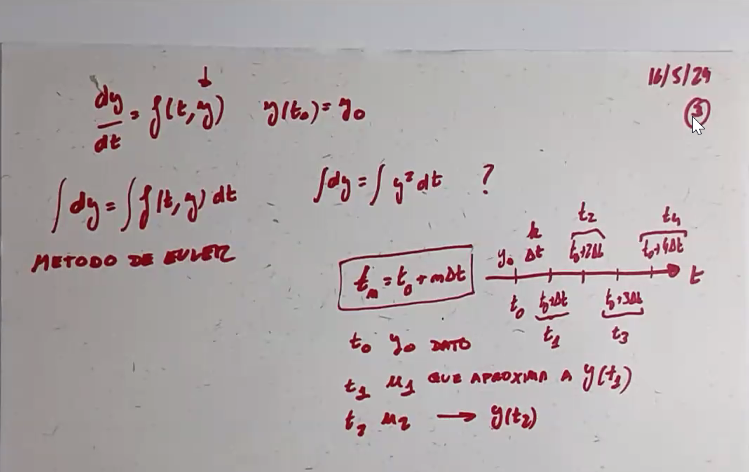 16/5/24
dy/dt = f(t, y)    y(t₀) = y₀
5
∫dy = ∫f(t, y) dt    ∫dy = ∫y² dt    ?
METODO DE EULER
tₘ = t₀ + mΔt
y₀ Δt t₂ t₀+2Δt t₄ t₀+4Δt
t
t₀ t₀+Δt t₁ t₀+3Δt t₃
t₀ y₀ DATO
t₁ u₁ QUE APROXIMA A y(t₁)
t₂ u₂ → y(t₂)